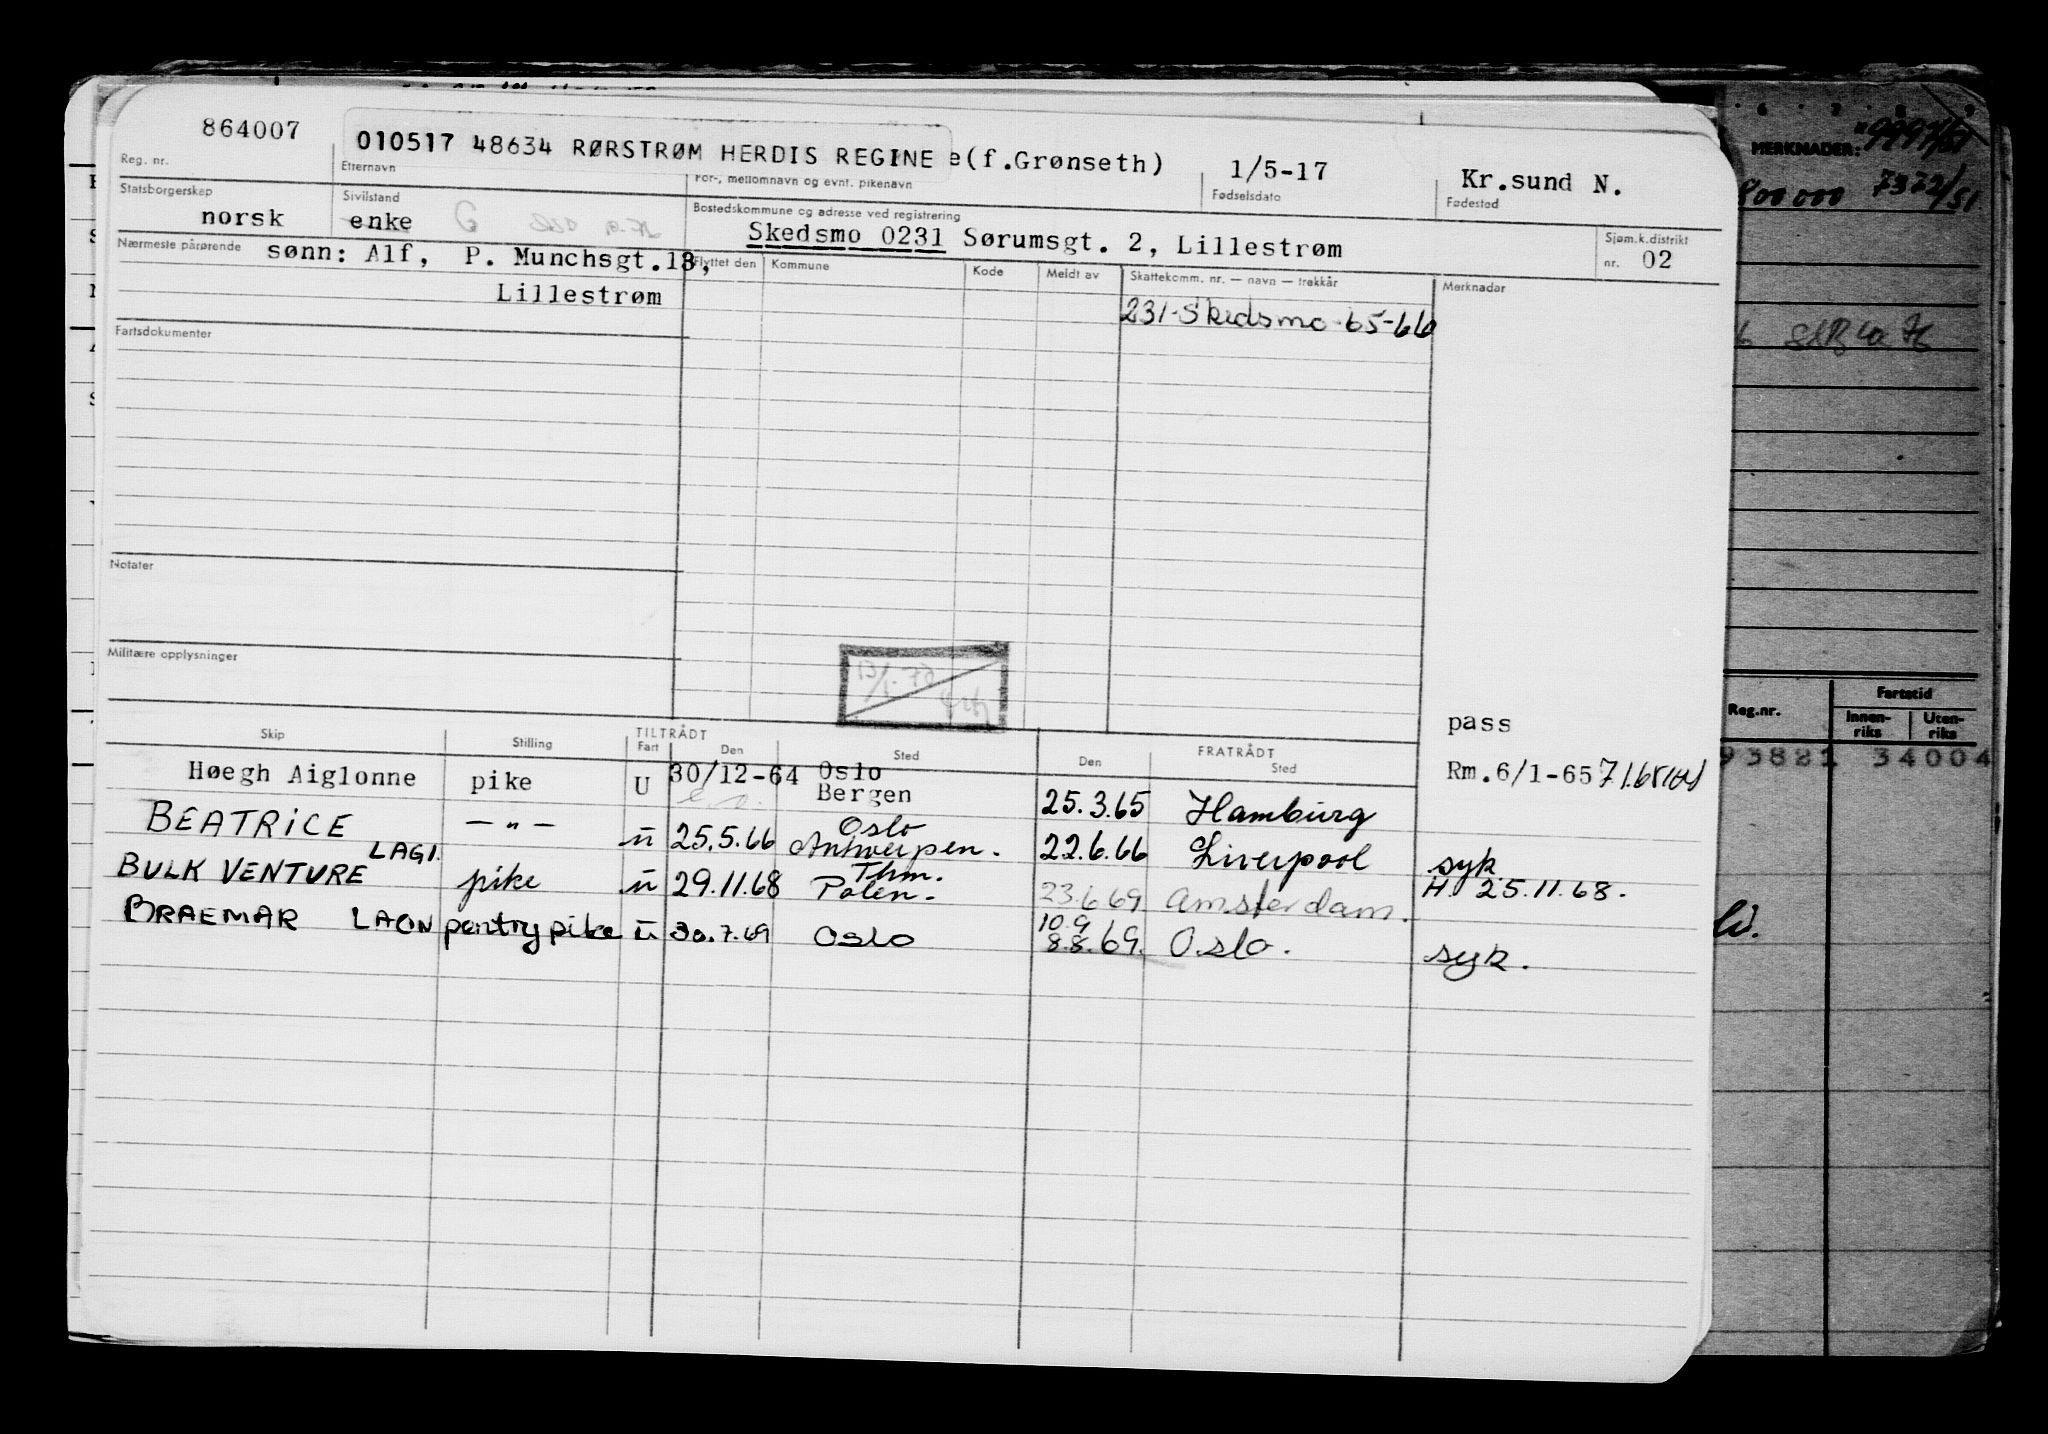 864007
010517 48634 RØRSTRØM HERDIS REGINE e(f.Grønseth)
1/5-17
Kr.sund N.
Reg. nr.
Etternavn
For-, mellomnavn og evnt. pikenavn
Fødselsdato
Fødested
Statsborgerskap
norsk
Sivilstand
enke G
Bostedskommune og adresse ved registrering
Skedsmo 0231 Sørumsgt. 2, Lillestrøm
Sjøm.k.distrikt
nr. 02
Nærmeste pårørende
sønn: Alf, P. Munchsgt.13,
Lillestrøm
Flyttet den Kommune Kode Meldt av Skattekomm. nr. — navn — trekkår Merknader
231-Skedsmo-65-66
Fartsdokumenter
Notater
Militære opplysninger
13/1-70
pass
Skip Stilling TILTRÅDT Fart Den Sted FRATRÅDT Den Sted
Høegh Aiglonne pike U 30/12-64 Oslo
Bergen 25.3.65 Hamburg Rm.6/1-65
BEATRICE — " — u 25.5.66 Oslo
Antwerpen. 22.6.66 Liverpool syk
BULK VENTURE LAGI. pike u 29.11.68 Thm.
Polen. 23.6.69 Amsterdam. H. 25.11.68.
BRAEMAR LAON pantrypike u 30.7.69 Oslo 10.9
8.8.69. Oslo. syk.
6 7 8 9
MERKNADER: 9997/51
800 000 7372/51
Reg.nr.
Fartstid
Innen-
riks
Uten-
riks
93821 34004